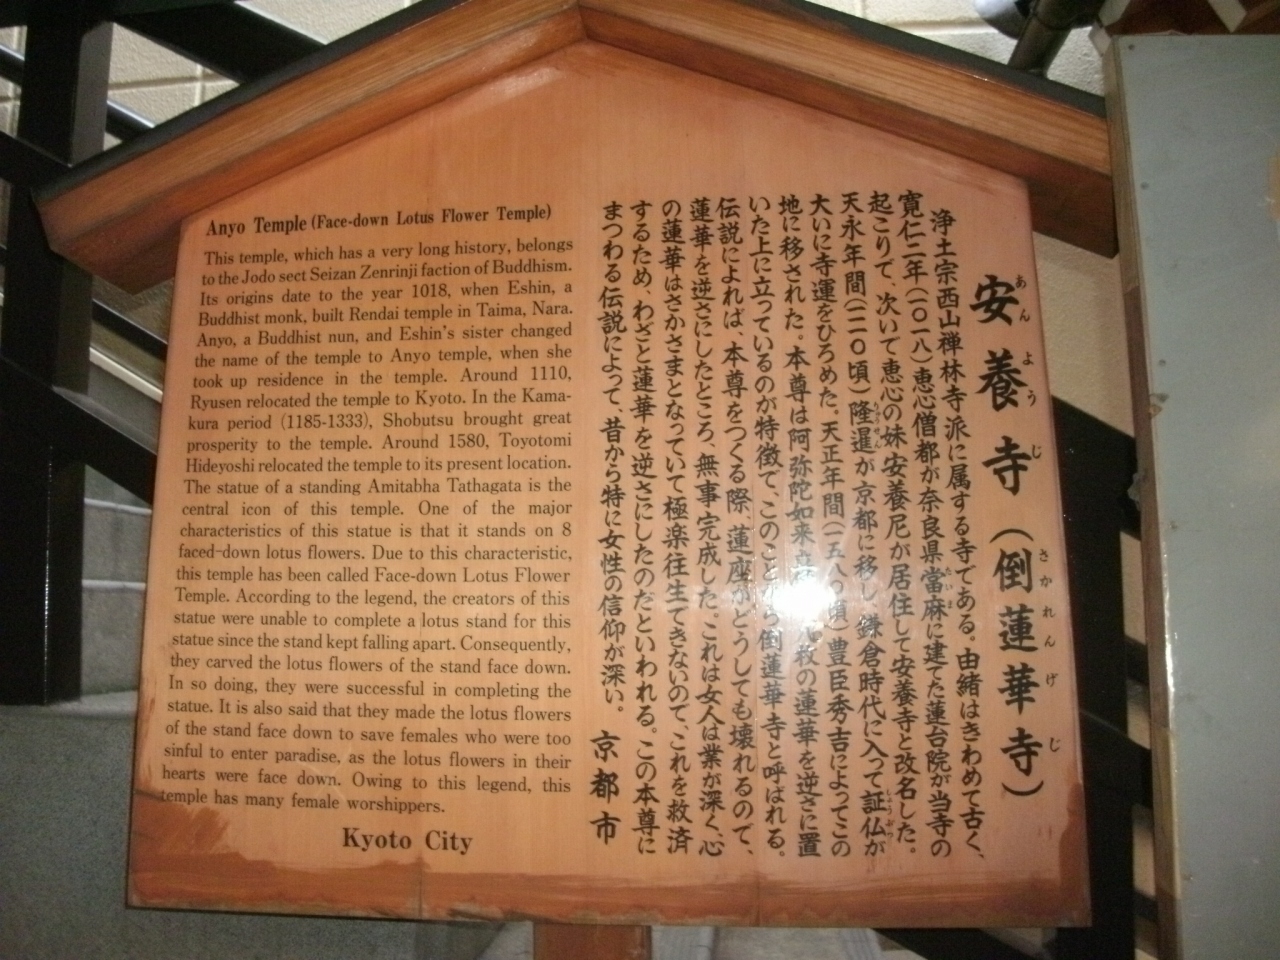 Anyo Temple (Face-down Lotus Flower Temple)
This temple, which has a very long history, belongs
to the Jodo sect Seizan Zenrinji faction of Buddhism.
Its origins date to the year 1018, when Eshin, a
Buddhist monk, built Rendai temple in Taima, Nara.
Anyo, a Buddhist nun, and Eshin's sister changed
the name of the temple to Anyo temple, when she
took up residence in the temple. Around 1110,
Ryusen relocated the temple to Kyoto. In the Kama-
kura period (1185-1333), Shobutsu brought great
prosperity to the temple. Around 1580, Toyotomi
Hideyoshi relocated the temple to its present location.
The statue of a standing Amitabha Tathagata is the
central icon of this temple. One of the major
characteristics of this statue is that it stands on 8
faced-down lotus flowers. Due to this characteristic,
this temple has been called Face-down Lotus Flower
Temple. According to the legend, the creators of this
statue were unable to complete a lotus stand for this
statue since the stand kept falling apart. Consequently,
they carved the lotus flowers of the stand face down.
In so doing, they were successful in completing the
statue. It is also said that they made the lotus flowers
of the stand face down to save females who were too
sinful to enter paradise, as the lotus flowers in their
hearts were face down. Owing to this legend, this
temple has many female worshippers.
Kyoto City
安養寺(倒蓮華寺)
あんようじ さかれんげじ
浄土宗西山禅林寺派に属する寺である。由緒はきわめて古く、
寛仁二年(一〇一八)恵心僧都が奈良県當麻に建てた蓮台院が当寺の
たいま
起こりで、次いで恵心の妹安養尼が居住して安養寺と改名した。
天永年間(一一一〇頃)隆暹が京都に移し、鎌倉時代に入って証仏が
りゅうせん しょうぶつ
大いに寺運をひろめた。天正年間(一五八〇頃)豊臣秀吉によってこの
地に移された。本尊は阿弥陀如来 枚の蓮華を逆さに置
いた上に立っているのが特徴で、このことから倒蓮華寺と呼ばれる。
伝説によれば、本尊をつくる際、蓮座がどうしても壊れるので、
蓮華を逆さにしたところ、無事完成した。これは女人は業が深く、心
の蓮華はさかさまとなっていて極楽往生できないので、これを救済
するため、わざと蓮華を逆さにしたのだといわれる。この本尊に
まつわる伝説によって、昔から特に女性の信仰が深い。 京都市